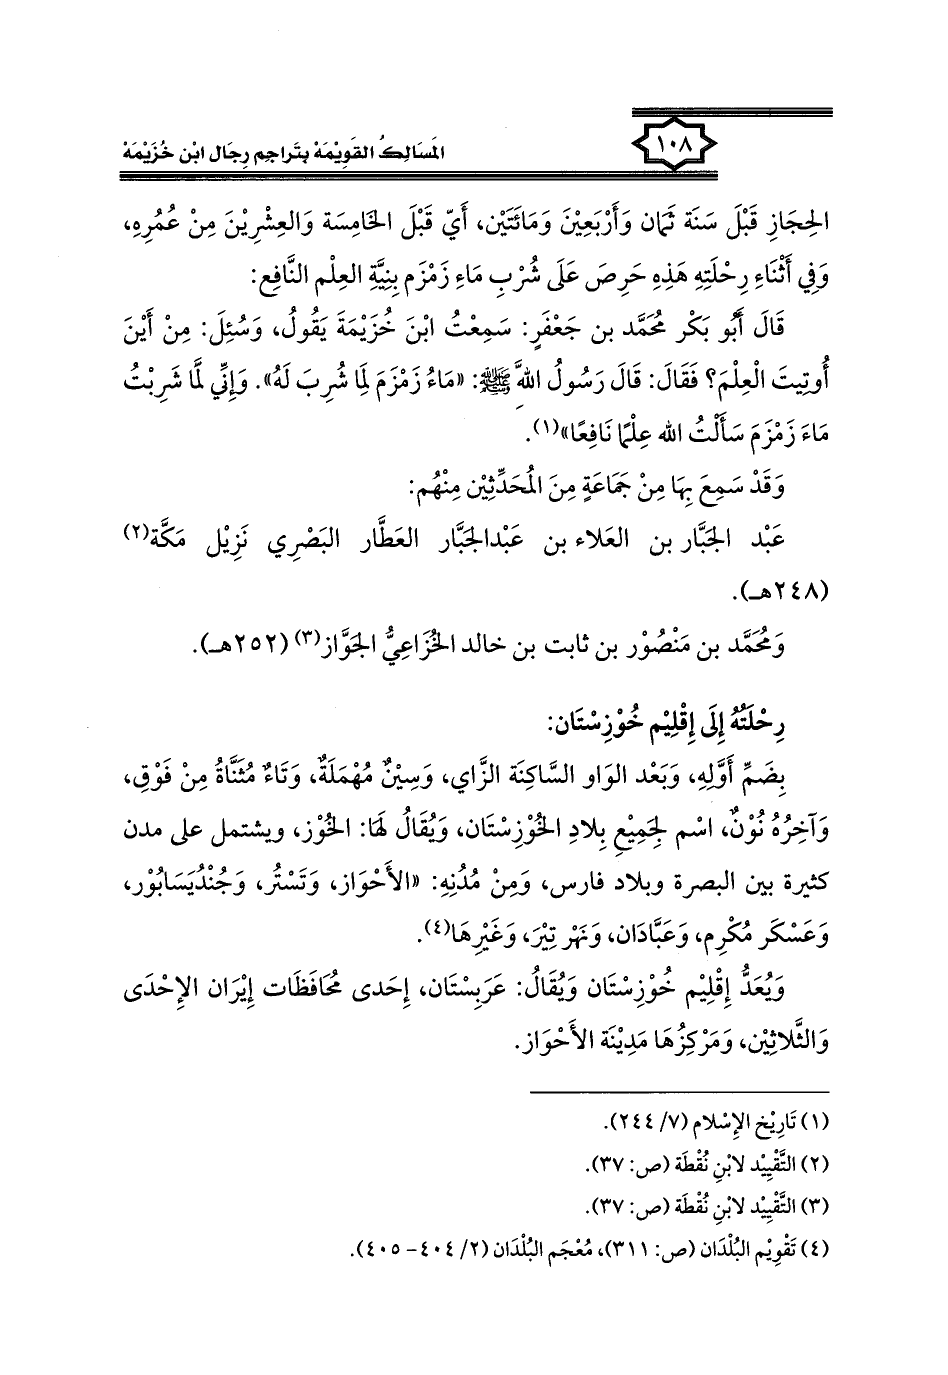 ١٠٨
المَسَالِكُ القَوِيْمَة بِتَراجِم رِجَال ابْن خُزَيْمَة
الحِجَازِ قَبْلَ سَنَة ثَمان وَأَرْبَعِيْنَ وَمَائَتَيْن، أَيّ قَبْلَ الخَامِسَة وَالعِشْرِيْنَ مِنْ عُمُرِهِ،
وَفِي أَثْنَاءِ رِحْلَتِهِ هَذِهِ حَرِصَ عَلَى شُرْبِ مَاءِ زَمْزَم بِنِيَّةِ العِلْم النَّافِع:
قَالَ أَبُو بَكْر مُحَمَّد بن جَعْفَرٍ: سَمِعْتُ ابْنَ خُزَيْمَةَ يَقُولُ، وَسُئِلَ: مِنْ أَيْنَ
أُوتِيتَ الْعِلْمَ؟ فَقَالَ: قَالَ رَسُولُ اللهِ ﷺ: «مَاءُ زَمْزَمَ لِمَا شُرِبَ لَهُ». وَإِنِّي لَمَّا شَرِبْتُ
مَاءَ زَمْزَمَ سَأَلْتُ الله عِلْمًا نَافِعًا»(١).
وَقَدْ سَمِعَ بِهَا مِنْ جَمَاعَةٍ مِنَ المُحَدِّثِيْن مِنْهُم:
عَبْد الجَبَّار بن العَلاء بن عَبْدالجَبَّار العَطَّار البَصْرِي نَزِيْل مَكَّة(٢)
(٢٤٨هـ).
وَمُحَمَّد بن مَنْصُوْر بن ثابت بن خالد الخُزَاعِيُّ الجَوَّاز(٣) (٢٥٢هـ).
رِحْلَتُهُ إِلَى إِقْلِيْم خُوْزِسْتَان:
بِضَمِّ أَوَّلِهِ، وَبَعْد الوَاو السَّاكِنَة الزَّاي، وَسِيْنٌ مُهْمَلَةٌ، وَتَاءٌ مُثَنَّاةٌ مِنْ فَوْق،
وَآخِرُهُ نُوْنٌ، اسْم لِجَمِيْعِ بِلادِ الخُوْزِسْتَان، وَيُقَالُ لَهَا: الخُوْز، ويشتمل على مدن
كثيرة بين البصرة وبلاد فارس، وَمِنْ مُدُنِهِ: «الأَحْوَاز، وَتَسْتُر، وَجُنْدُيَسَابُوْر،
وَعَسْكَر مُكْرِم، وَعَبَّادَان، وَنَهْر تِيْرَ، وَغَيْرِهَا(٤).
وَيُعَدُّ إِقْلِيْم خُوْزِسْتَان وَيُقَالُ: عَرَبِسْتَان، إِحَدى مُحَافَظَات إِيْرَان الإِحْدَى
وَالثَّلاثِيْن، وَمَرْكِزُهَا مَدِيْنَة الأَحْوَاز.
(١) تَارِيْخ الإِسْلام (٧/ ٢٤٤).
(٢) التَّقْيِيْد لابْنِ نُقْطَة (ص: ٣٧).
(٣) التَّقْيِيْد لابْنِ نُقْطَة (ص: ٣٧).
(٤) تَقْوِيْم البُلْدَان (ص: ٣١١)، مُعْجَم البُلْدَان (٢/ ٤٠٤- ٤٠٥).